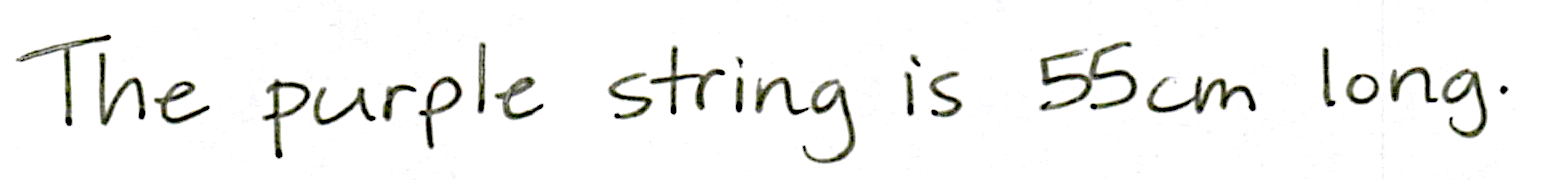 The purple string is 55cm long.